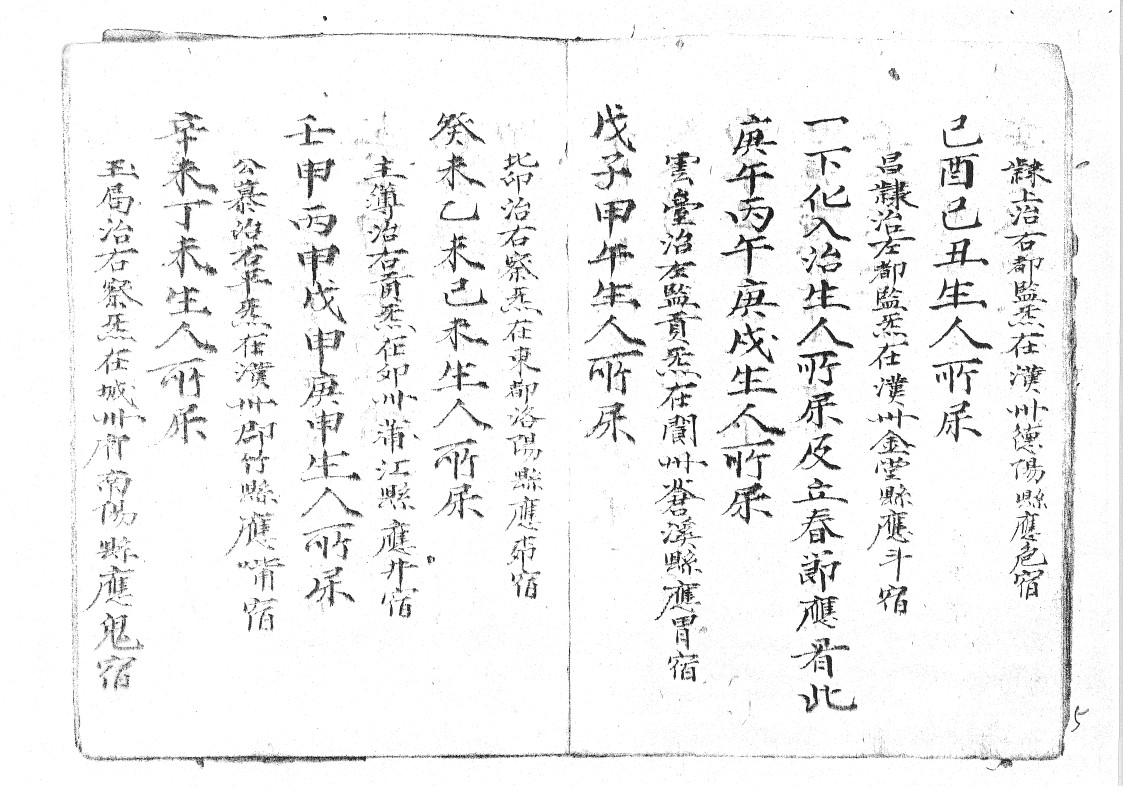 隸上治右都監炁在漢州德陽縣應危宿
己酉己丑生人所屎
昌隸治左都監炁在漢州金堂縣應斗宿
一下化入治生人所屎及立春節應看此
庚午丙午庚戌生人所屎
雲臺治左監貢炁在閬州蒼溪縣應胃宿
戊子甲午生人所屎
北邙治右察炁在東都洛陽縣應 宿
癸未乙未己未生人所屎
主簿治右貢炁在邛州蒲江縣應井宿
壬申丙申戊申庚申生人所屎
公慕治右平炁在漢州 竹縣應嘴宿
辛未丁未生人所屎
玉局治右察炁在城州府南陽縣應鬼宿
5